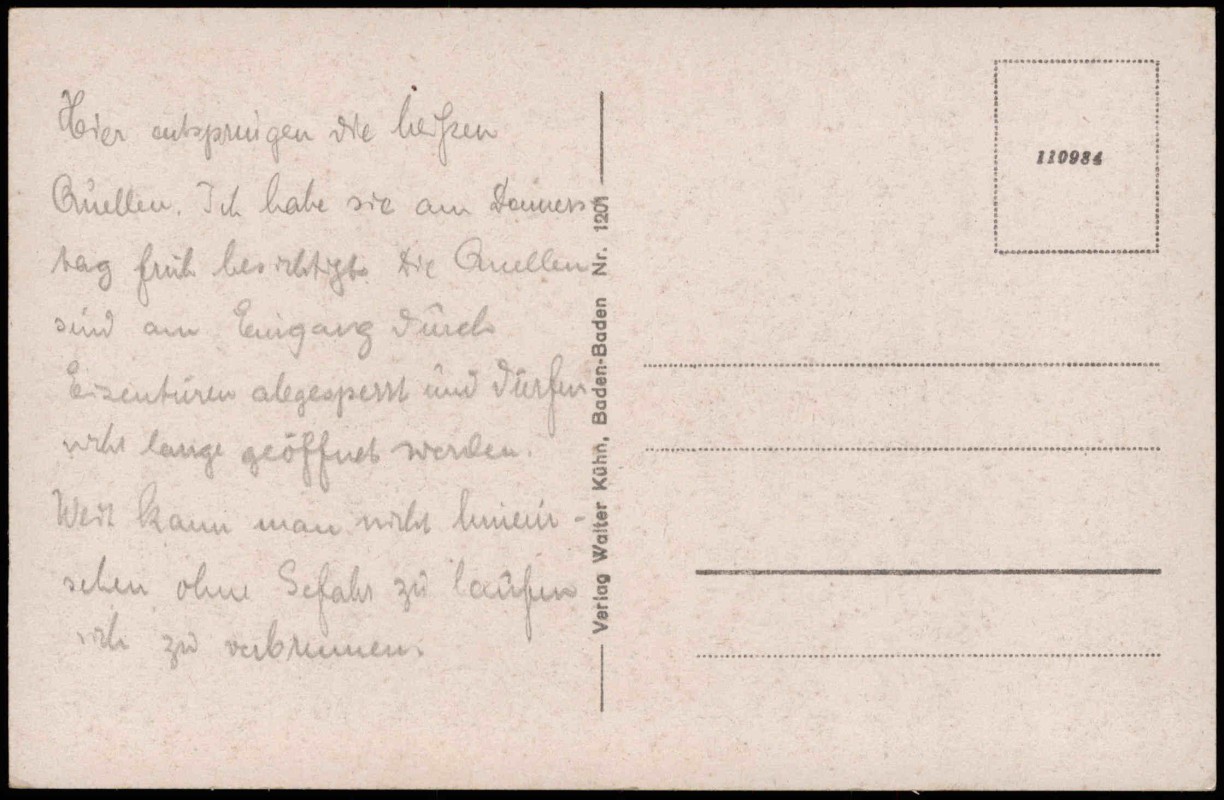 Hier entspringen die heißen
Quellen. Ich habe sie am Donners
tag früh besichtigt. Die Quellen
sind am Eingang durch
Eisentüren abgesperrt und dürfen
nicht lange geöffnet werden.
Weit kann man nicht hinein-
sehen ohne Gefahr zu laufen
sich zu verbrennen.
Verlag Walter Kühn, Baden-Baden Nr. 1201
110984